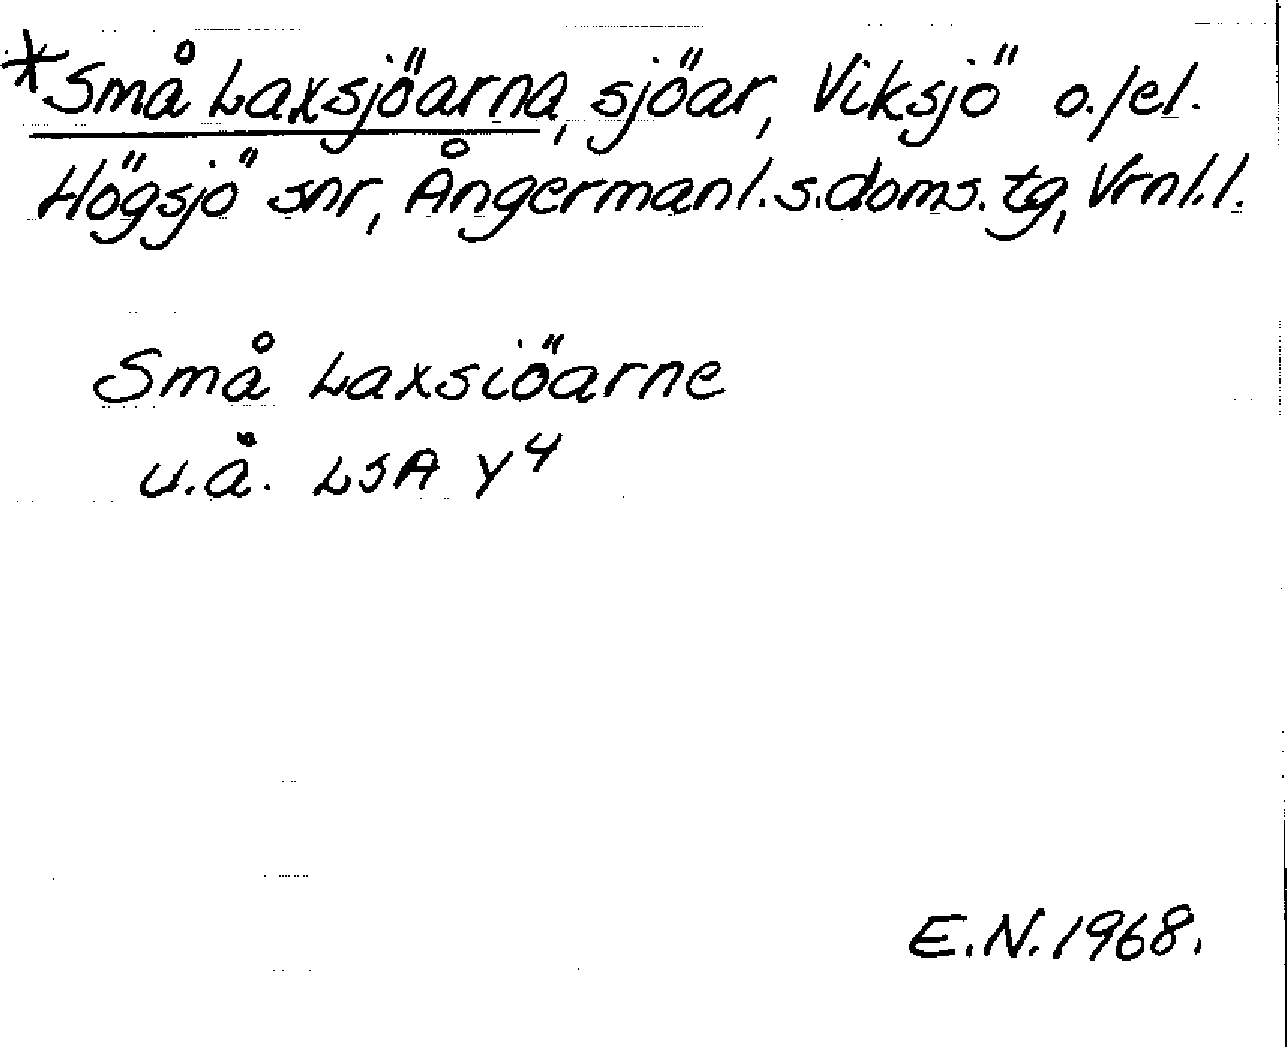 *Små Laxsjöarna, sjöar, Viksjö o./el.
Högsjö snr, Ångermanl.s.doms.tg, Vrnl.l.
Små Laxsiöarne
u.å. LSA Y4
E.N.1968.